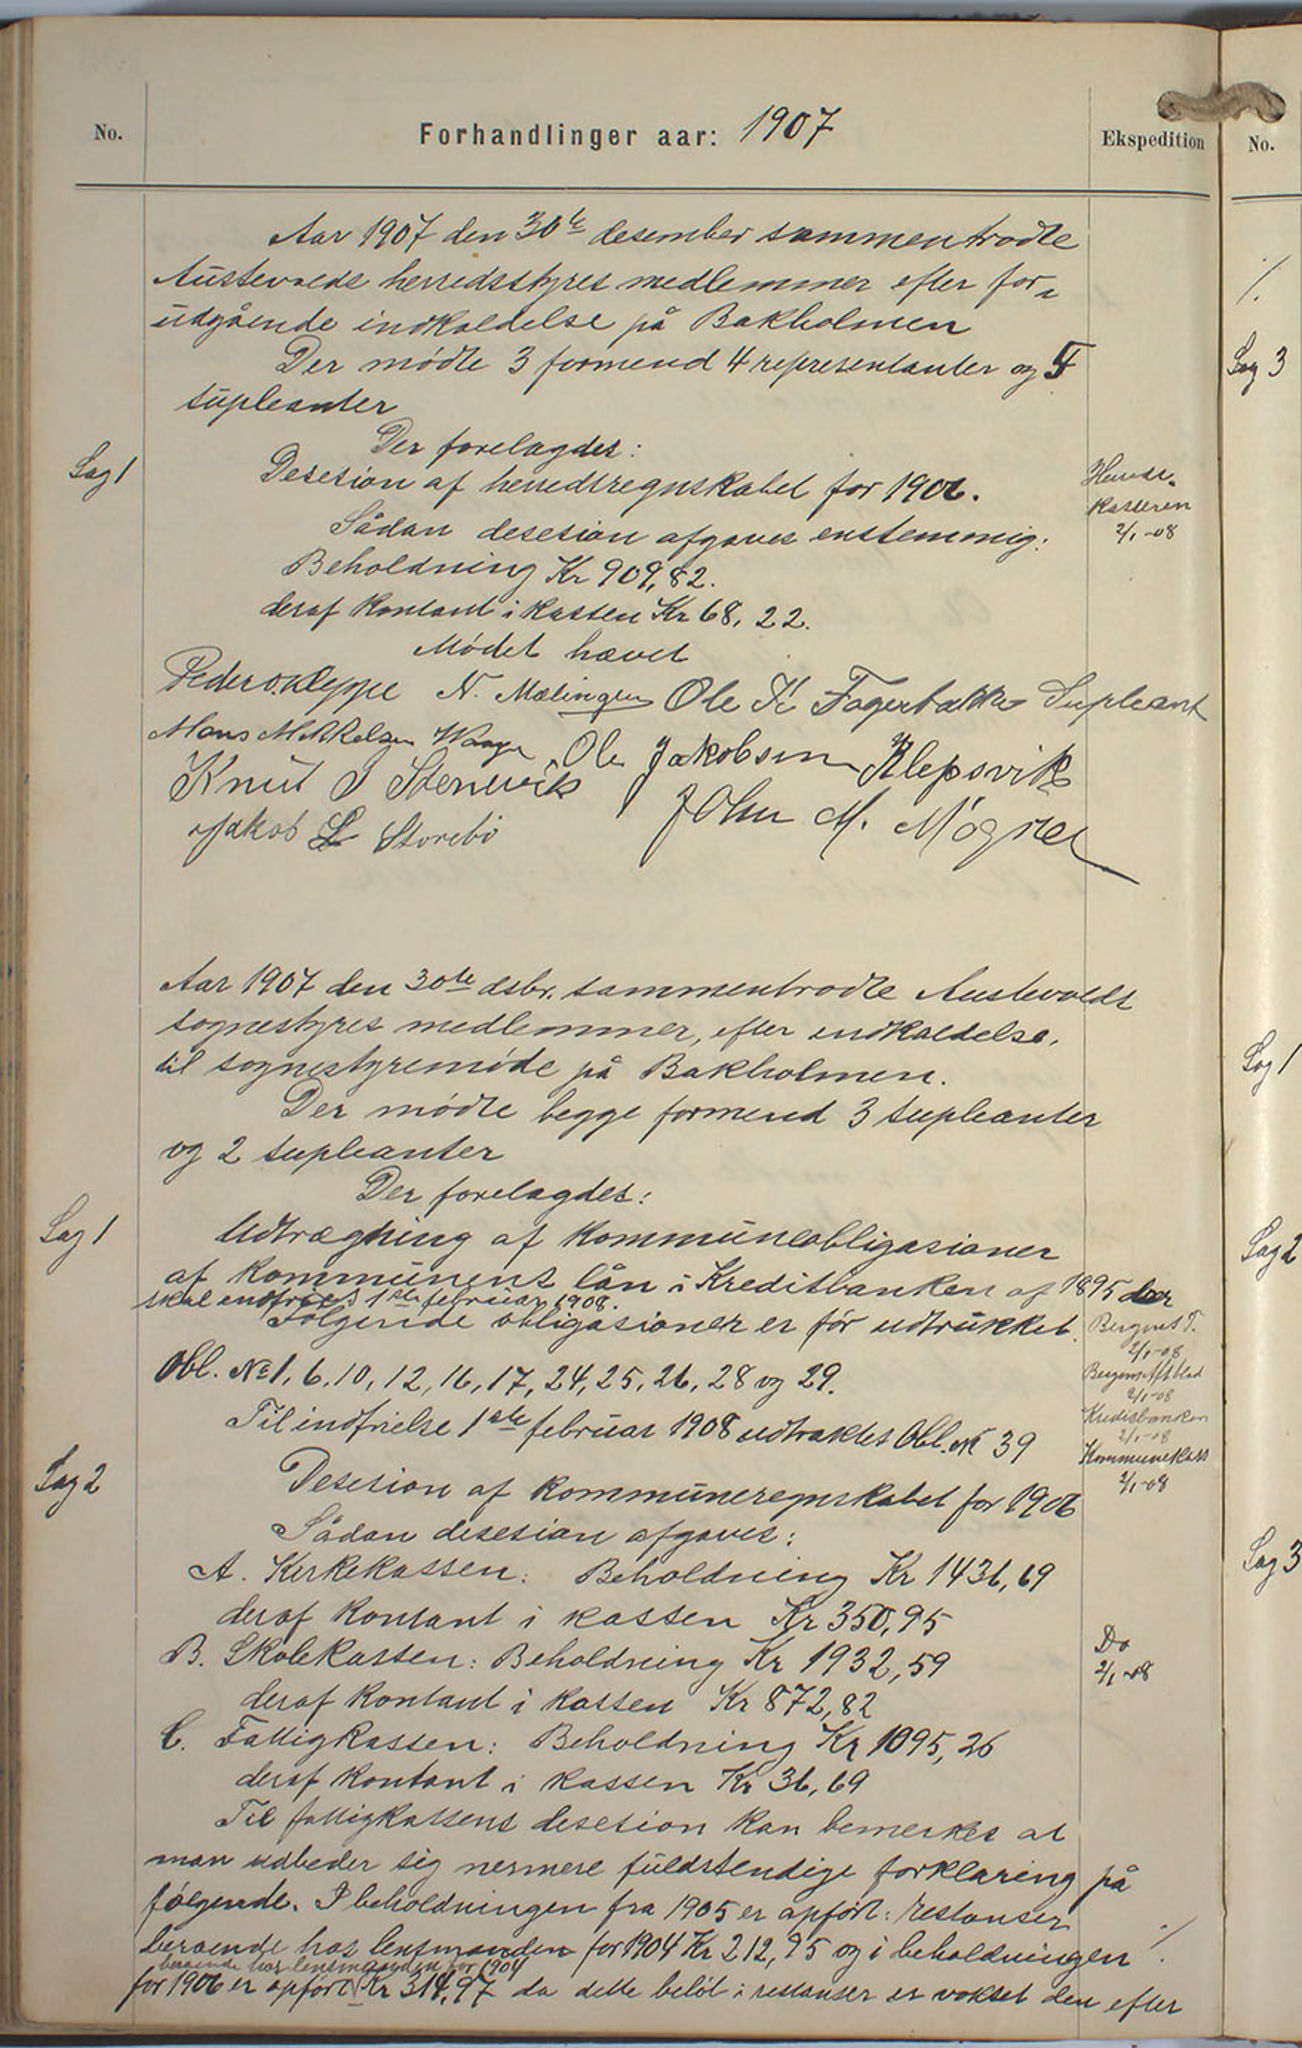 No.
Forhandlinger aar: 1907
Ekspedition
No.
Aar 1907 den 30te desember sammentrodte
Austevolds herredsstyres medlemmer efter for-
udgående indkaldelse på Bakholmen
Der mødte 3 formend 4 representanter og 5
supleanter
Der forelagdes:
Sag 1
Desesion af herredsregnskabet for 1906.
Herreds-
kasseren
2/1-08
Sådan desesion afgaves enstemmig:
Beholdning Kr 909,82.
deraf kontant i kassen Kr 68,22.
Mødet hævet
Peder O. Kleppe N. Mælingen Ole K Fagerbakke Supleant
Mons Mikkelsen Waage Ole Jakobsen Klepsvik
Knut J Stenevik John M. Møgster
Jakob L Storebø
Aar 1907 den 30te dsbr. sammentrodte Austevolds
sognestyres medlemmer, efter indkaldelse,
til sognestyremøde på Bakholmen.
Der mødte begge formend 3 supleanter
og 2 supleanter
Der forelagdes:
Sag 1
Udtrægning af kommuneobligasioner
af kommunens lån i Kreditbanken af 1895 der
skal indfries 1ste februar 1908.
Følgende obligasioner er før udtrukket.
Obl. No 1, 6, 10, 12, 16, 17, 24, 25, 26, 28 og 29.
Til indfrielse 1ste februar 1908 udtraktes Obl. No 39
Bergens T.
2/1-08
Bergens Aftblad
2/1-08
Kreditbanken
2/1-08
Kommunekass
2/1-08
Sag 2
Desesion af kommuneregnskabet for 1906
Sådan desesion afgaves:
A. Kirkekassen: Beholdning Kr 1436,69
deraf kontant i kassen Kr 350,95
B. Skolekassen: Beholdning Kr 1932,59
Do
2/1-08
deraf kontant i kassen Kr 872,82
C. Fattigkassen: Beholdning Kr 1095,26
deraf kontant i kassen Kr 36,69
Til fattigkassens desesion kan bemerkes at
man udbeder sig nermere fuldstendige forklaring på
følgende. I beholdningen fra 1905 er opført: restanser
beroende hos lensmanden for 1904 Kr 212,95 og i beholdningen
beroende hos lensmanden for 1904
for 1906 er opført Kr 314,97 da dette beløb i restanser er vokset den efter
./.
./.
Sag 3
Sag 1
Sag 2
Sag 3